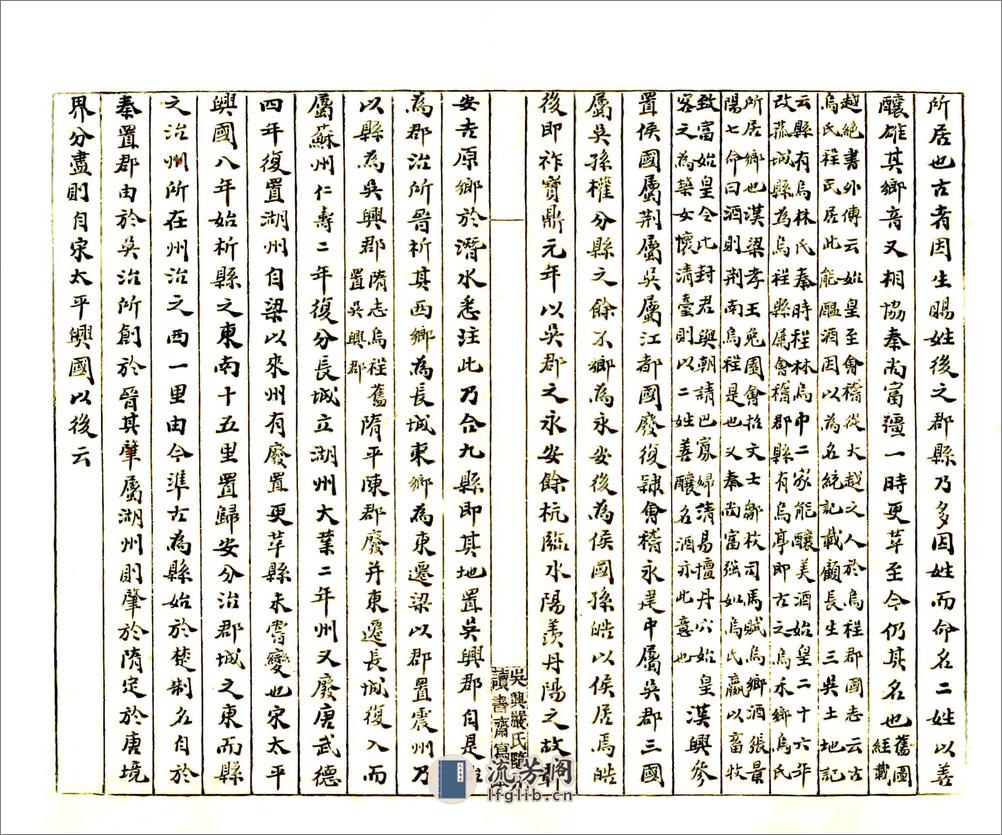 所居也古者因生賜姓後之郡縣乃多因姓而命名二姓以善
釀雄其鄉音又相協秦尚富彊一時更革至今仍其名也舊圖經載
越絕書外傳云始皇至會稽從大越之人於烏程郡國志云古
烏氏程氏居此能醞酒因以為名統記載顧長生三吳土地記
云縣有烏林氏秦時程林烏巾二家能釀美酒始皇二十六年
改菰城縣為烏程縣屬會稽郡縣有烏亭即古之烏禾鄉烏氏
所居鄉也漢梁孝王兔園會招文士鄒枚司馬賦烏鄉酒張景
陽七命曰酒則荆南烏程是也又秦尚富强如烏氏蠃以畜牧
致富始皇令比封君與朝請巴寡婦清易擅丹穴始皇
客之為築女懷清臺則以二姓善釀名酒亦此意也
漢興參
置侯國屬荆屬吳屬江都國廢復隸會稽永建中屬吳郡三國
屬吳孫權分縣之餘不鄉為永安後為侯國孫皓以侯居焉皓
後即祚寶鼎元年以吳郡之永安餘杭臨水陽羨丹陽之故鄣
吳興嚴氏
讀書齋寫
安吉原鄉於潛水悉注此乃合九縣即其地置吳興郡自是
為郡治所晉析其西鄉為長城東鄉為東遷梁以郡置震州乃
以縣為吳興郡隋志烏程舊置吳興郡隋平陳郡廢并東遷長城復入而
屬蘇州仁壽二年復分長城立湖州大業二年州又廢唐武德
四年復置湖州自梁以來州有廢置更革縣未嘗變也宋太平
興國八年始析縣之東南十五里置歸安分治郡城之東而縣
之治州所在州治之西一里由今準古為縣始於楚制名自於
秦置郡由於吳治所創於晉其肇屬湖州則肇於隋定於唐境
界分盡則自宋太平興國以後云
流芳阁
lfglib.cn